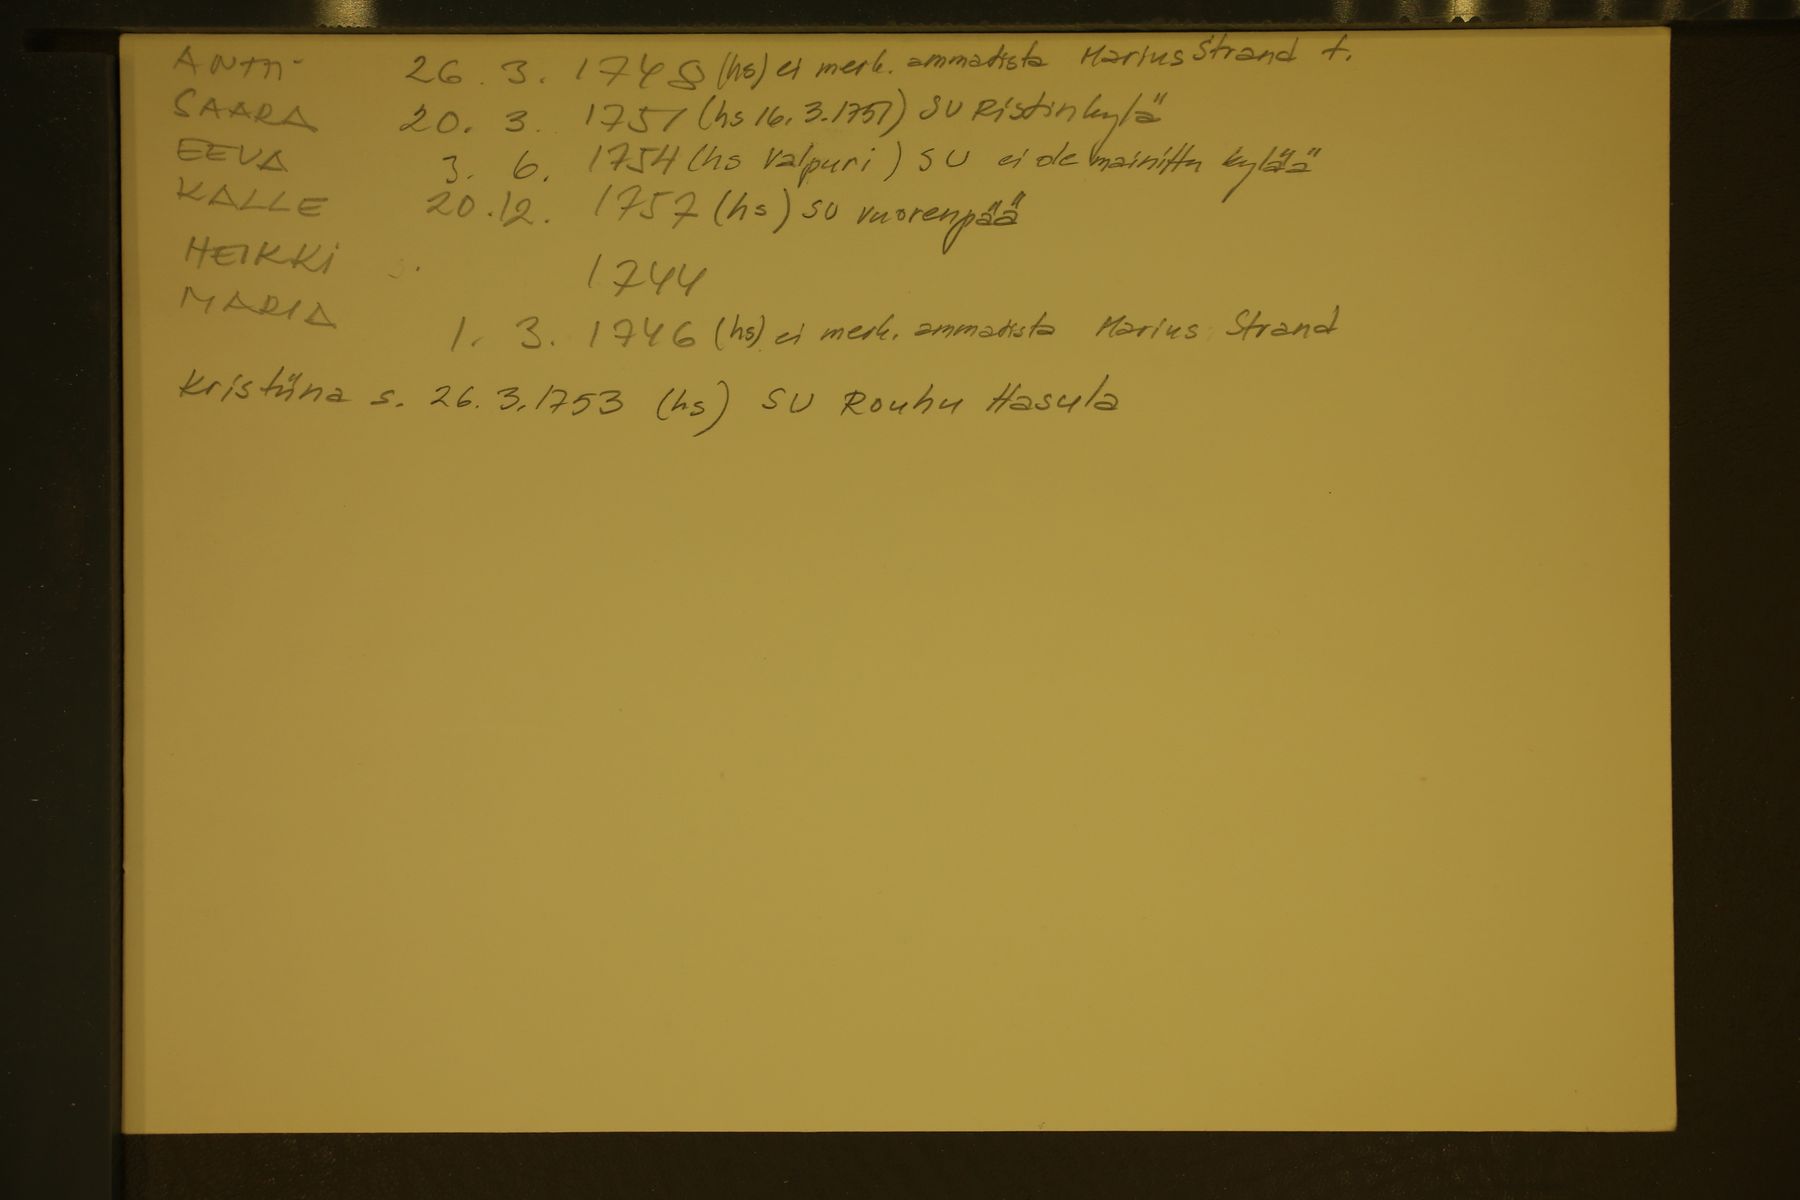 ANTTI 26. 3. 1748 (hs) ei merk. ammatista Marius Strand t.
SAARA 20. 3. 1751 (hs 16. 3. 1751) SU Ristinkylä
EEVA 3. 6. 1754 (hs Valpuri) SU ei ole mainittu kylää
KALLE 20.12. 1757 (hs) SU Vuorenpää
HEIKKI 1744
MARIA 1. 3. 1746 (hs) ei merk. ammatista Marius Strand
Kristiina s. 26. 3. 1753 (hs) SU Rouhu Hasula